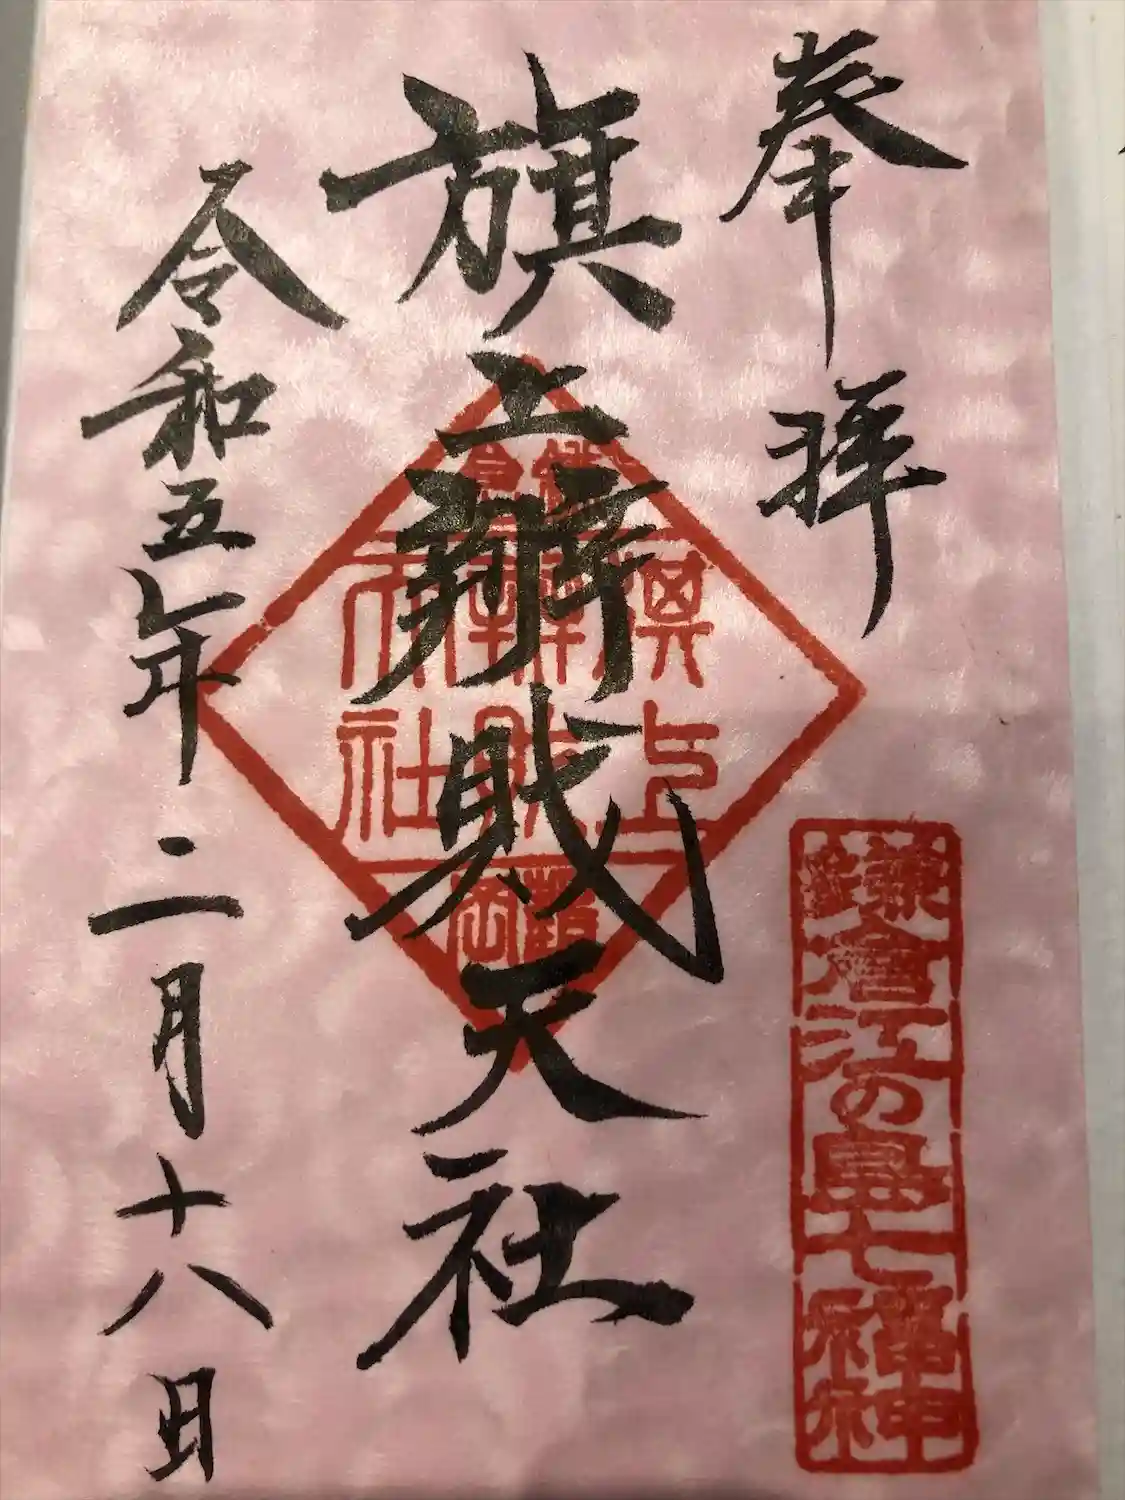 奉拝
旗上辨財天社
令和五年二月十八日
鎌倉
旗上
辨財
天社
鶴岡
鎌倉江の島七福神